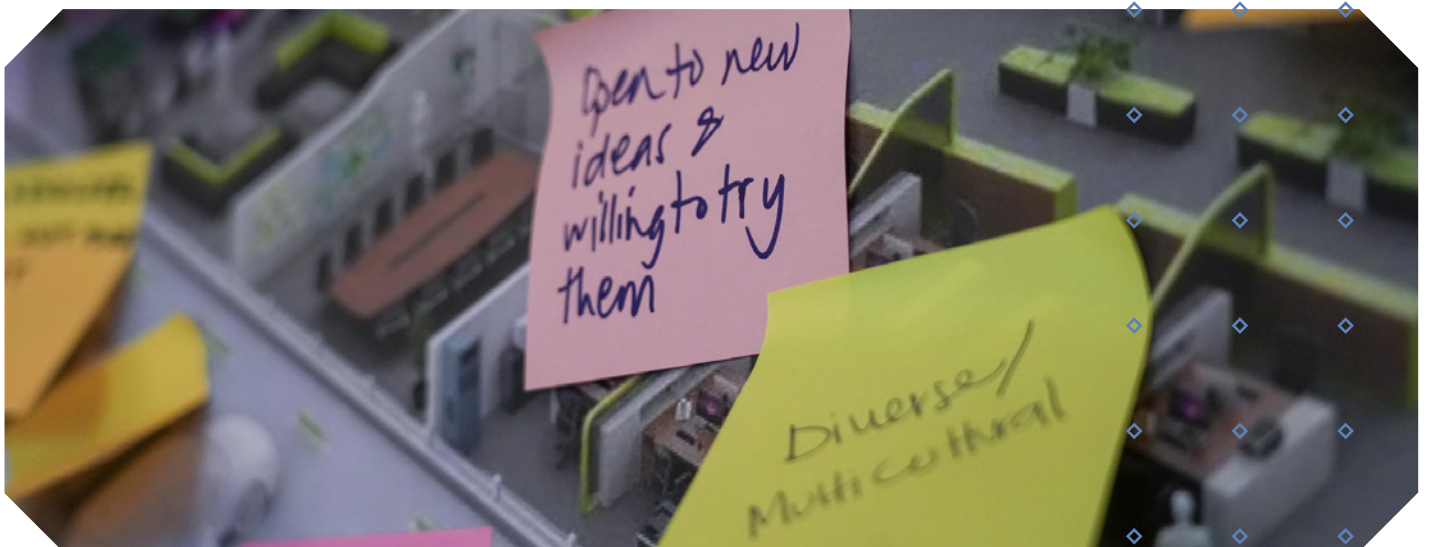 Open to new
ideas &
willing to try
them
Diverse/
Multicultural